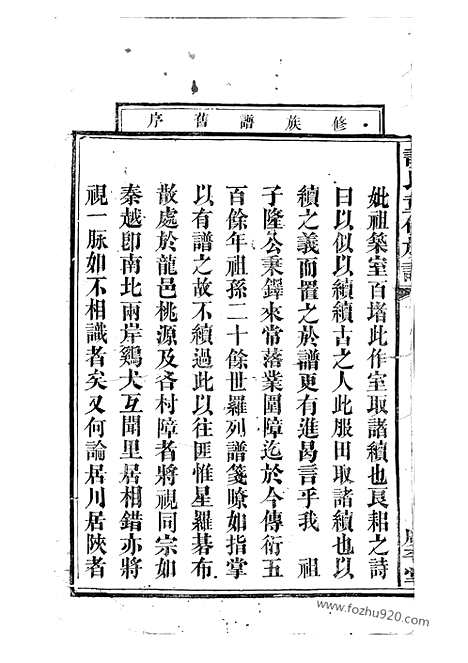 修族譜舊序
妣祖築室百堵此作室取諸續也良耜之詩
曰以似以續續古之人此服田取諸續也以
續之義而置之於譜更有逛曷言乎我　祖
子隆公秉鐸來常落業圍障迄於今傳衍五
百餘年祖孫二十餘世羅列譜箋瞭如指掌
以有譜之故不續過此以往匪惟星羅碁布
散處於龍邑桃源及各村障者將視同宗如
秦越卽南北兩岸鷄犬互聞里居相錯亦將
視一脉如不相識者矣又何論居川居陜者
www.fozhu920.com